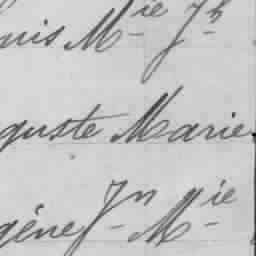 uis Mie Jh
guste Marie
gène Jn Mie